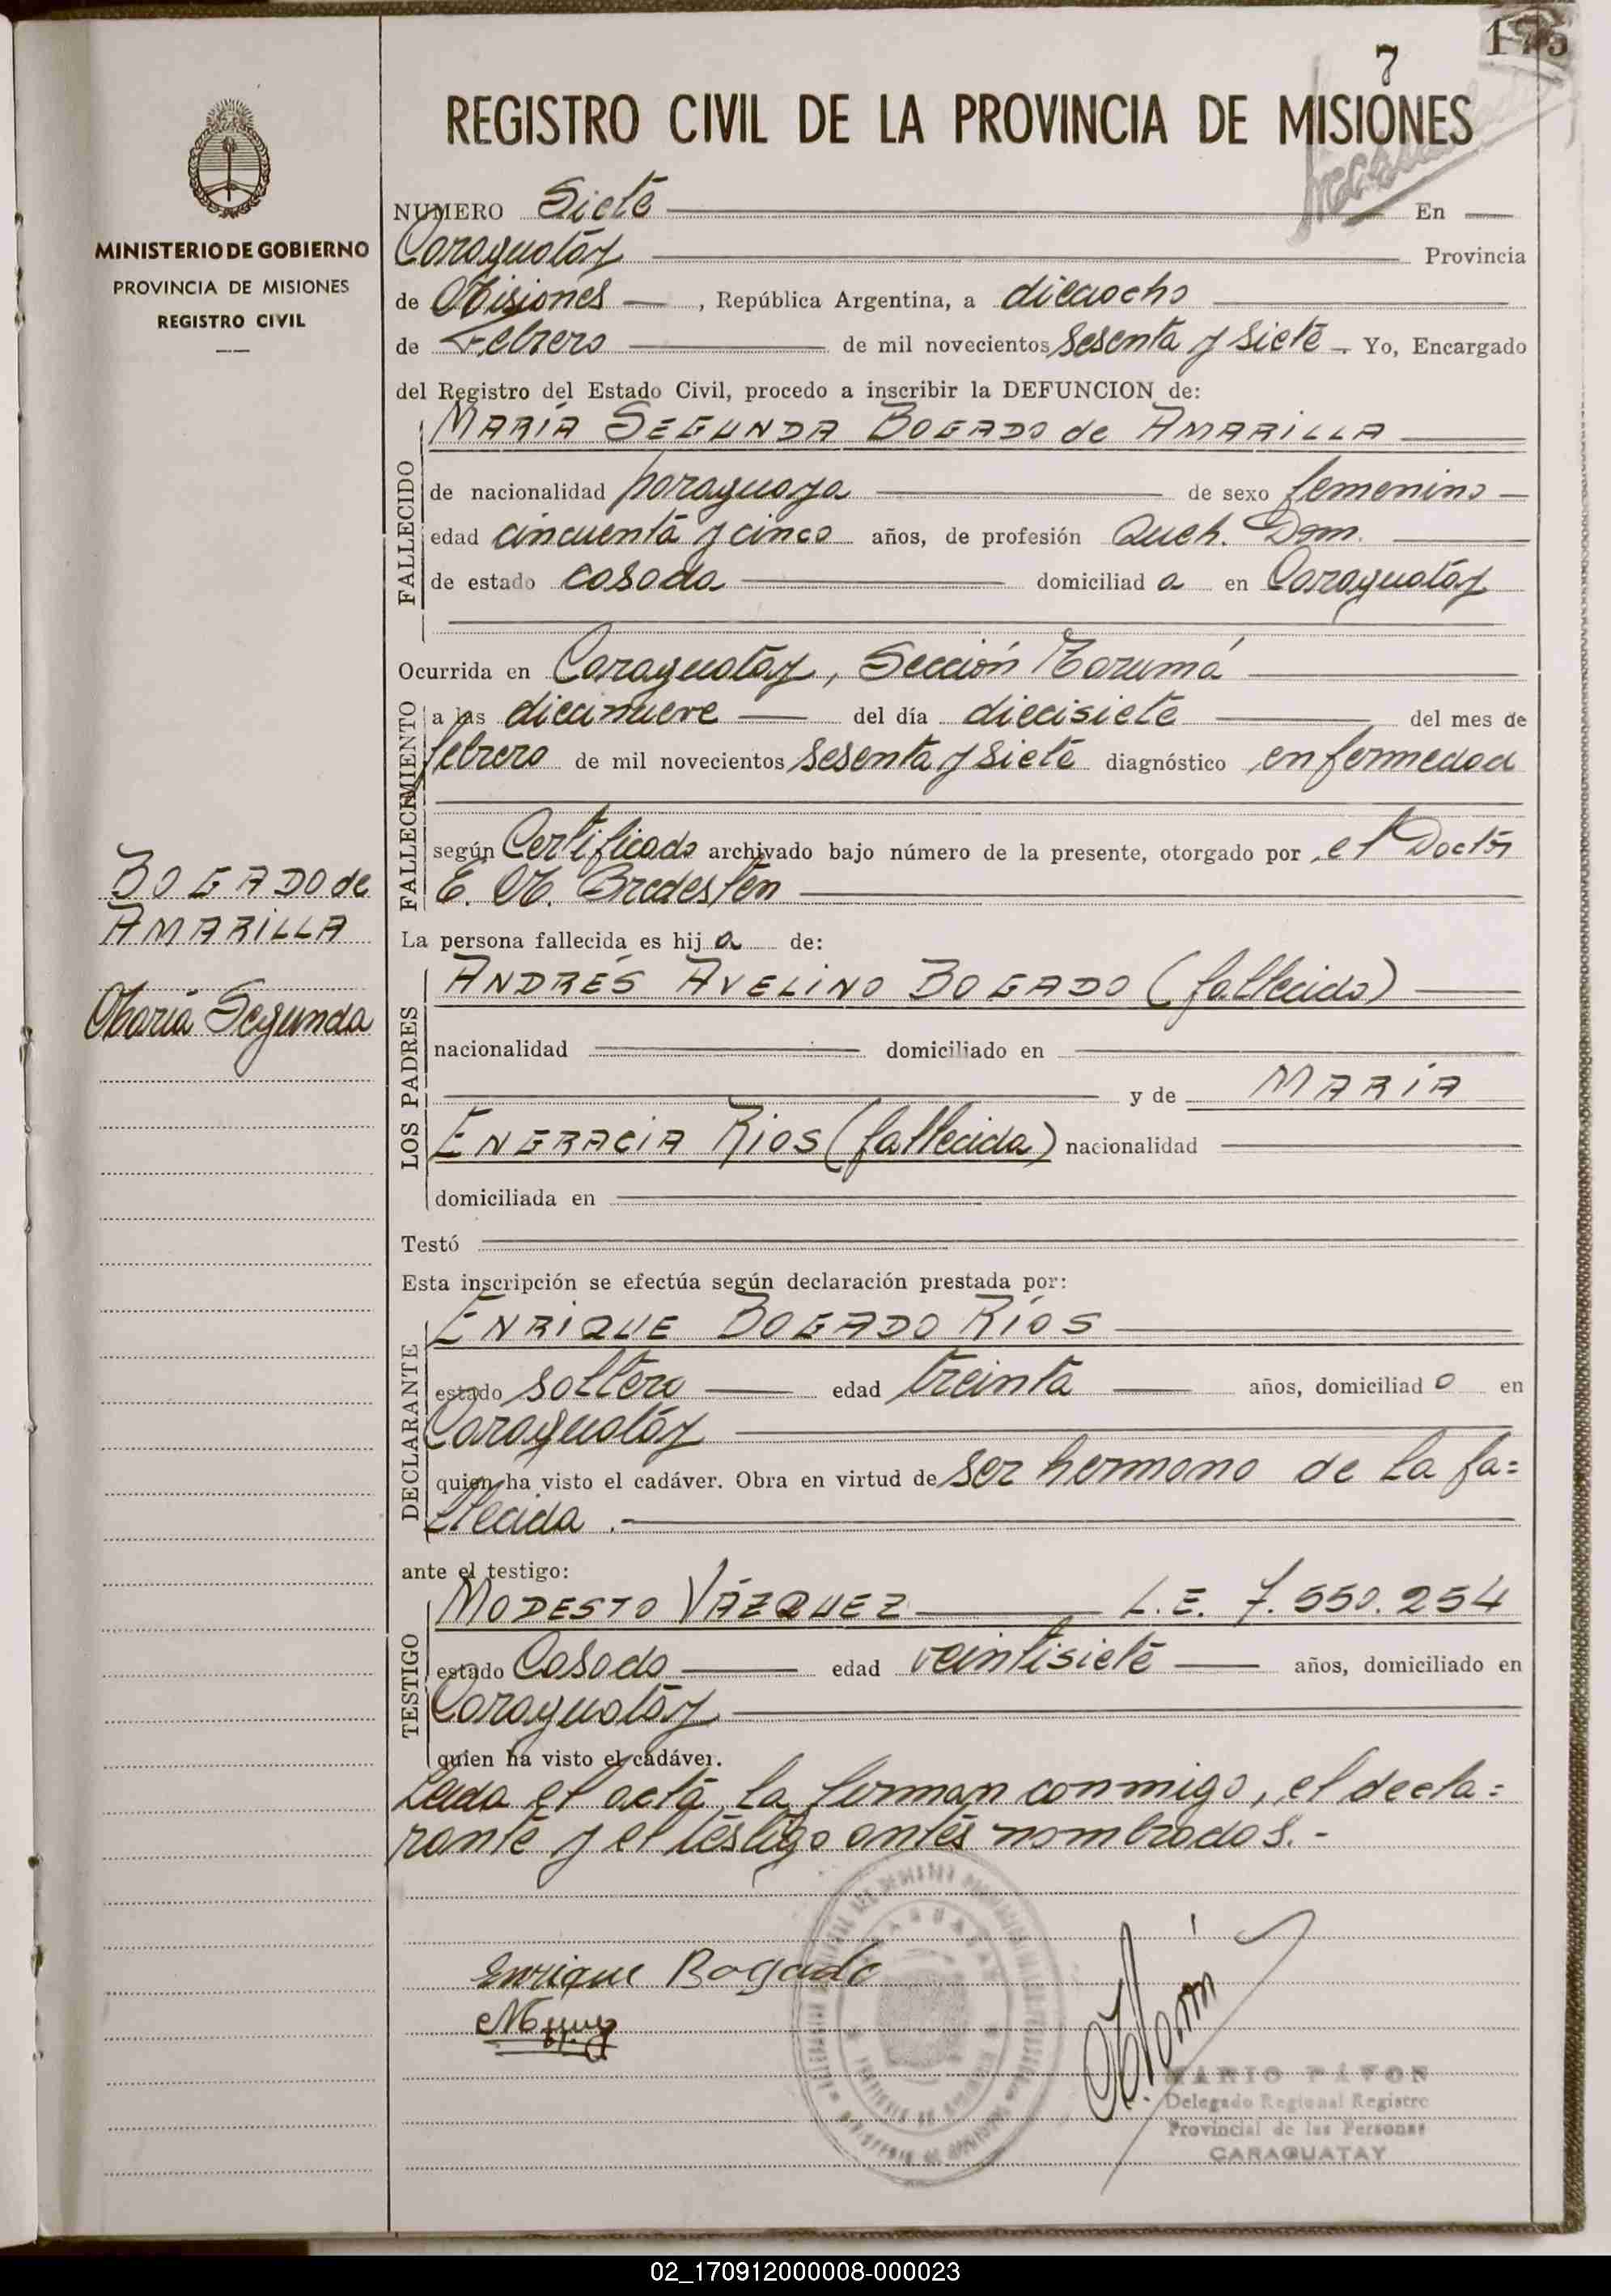 7
REGISTRO CIVIL DE LA PROVINCIA DE MISIONES
MINISTERIO DE GOBIERNO
PROVINCIA DE MISIONES
REGISTRO CIVIL
NUMERO Siete En
Caraguatáy Provincia
de Misiones, República Argentina, a dieciocho
de Febrero de mil novecientos sesenta y siete. Yo, Encargado
del Registro del Estado Civil, procedo a inscribir la DEFUNCION de:
FALLECIDO
MARÍA SEGUNDA BOGADO de AMARILLA
de nacionalidad paraguaya de sexo femenino
edad cincuenta y cinco años, de profesión Queh. Dom.
de estado casada domiciliad a en Caraguatáy
Ocurrida en Caraguatáy, Sección Tarumá
FALLECIMIENTO
a las diecinueve del día diecisiete del mes de
febrero de mil novecientos sesenta y siete diagnóstico enfermedad
según Certificado archivado bajo número de la presente, otorgado por el Doctor
E. M.
BOGADO de
AMARILLA
María Segunda
La persona fallecida es hij a de:
LOS PADRES
ANDRÉS AVELINO BOGADO (fallecido)
nacionalidad domiciliado en
y de MARÍA
ENGRACIA RIOS (fallecida) nacionalidad
domiciliada en
Testó
Esta inscripción se efectúa según declaración prestada por:
DECLARANTE
ENRIQUE BOGADO RÍOS
estado soltero edad treinta años, domiciliad o en
Caraguatáy
quien ha visto el cadáver. Obra en virtud de ser hermano de la fa=
llecida.
ante el testigo:
TESTIGO
MODESTO VÁZQUEZ L.E. 7.550.254
estado Casado edad veintisiete años, domiciliado en
Caraguatáy
quien ha visto el cadáver.
Leída el acta, la firman conmigo, el decla=
rante y el testigo antes nombrados.-
Enrique Bogado
MARIO PAVON
Delegado Regional Registro
Provincial de las Personas
CARAGUATAY
02_170912000008-000023